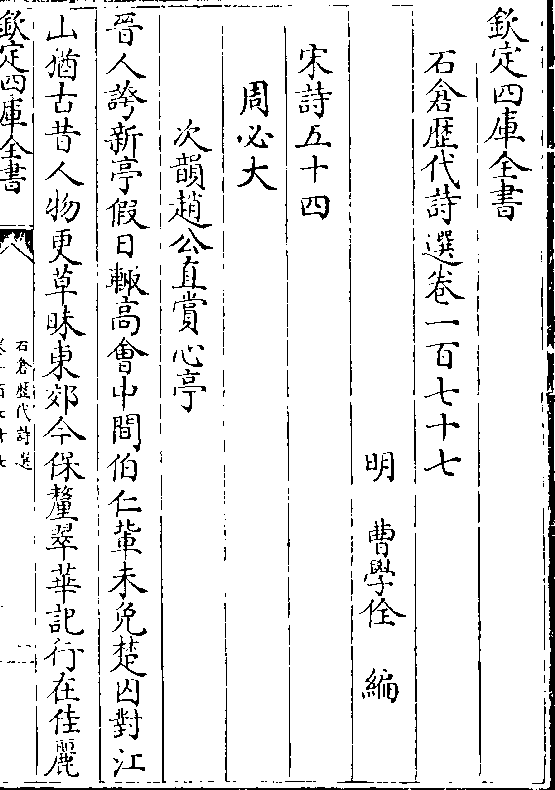 欽定四庫全書
石倉歷代詩選卷一百七十七
明 曹學佺 編
宋詩五十四
周必大
次韻趙公直賞心亭
晉人誇新亭假日輙高會中間伯仁輩未免楚囚對江
山猶古昔人物更草昧東郊今保釐翠華記行在佳麗
欽定四庫全書
石倉歷代詩選